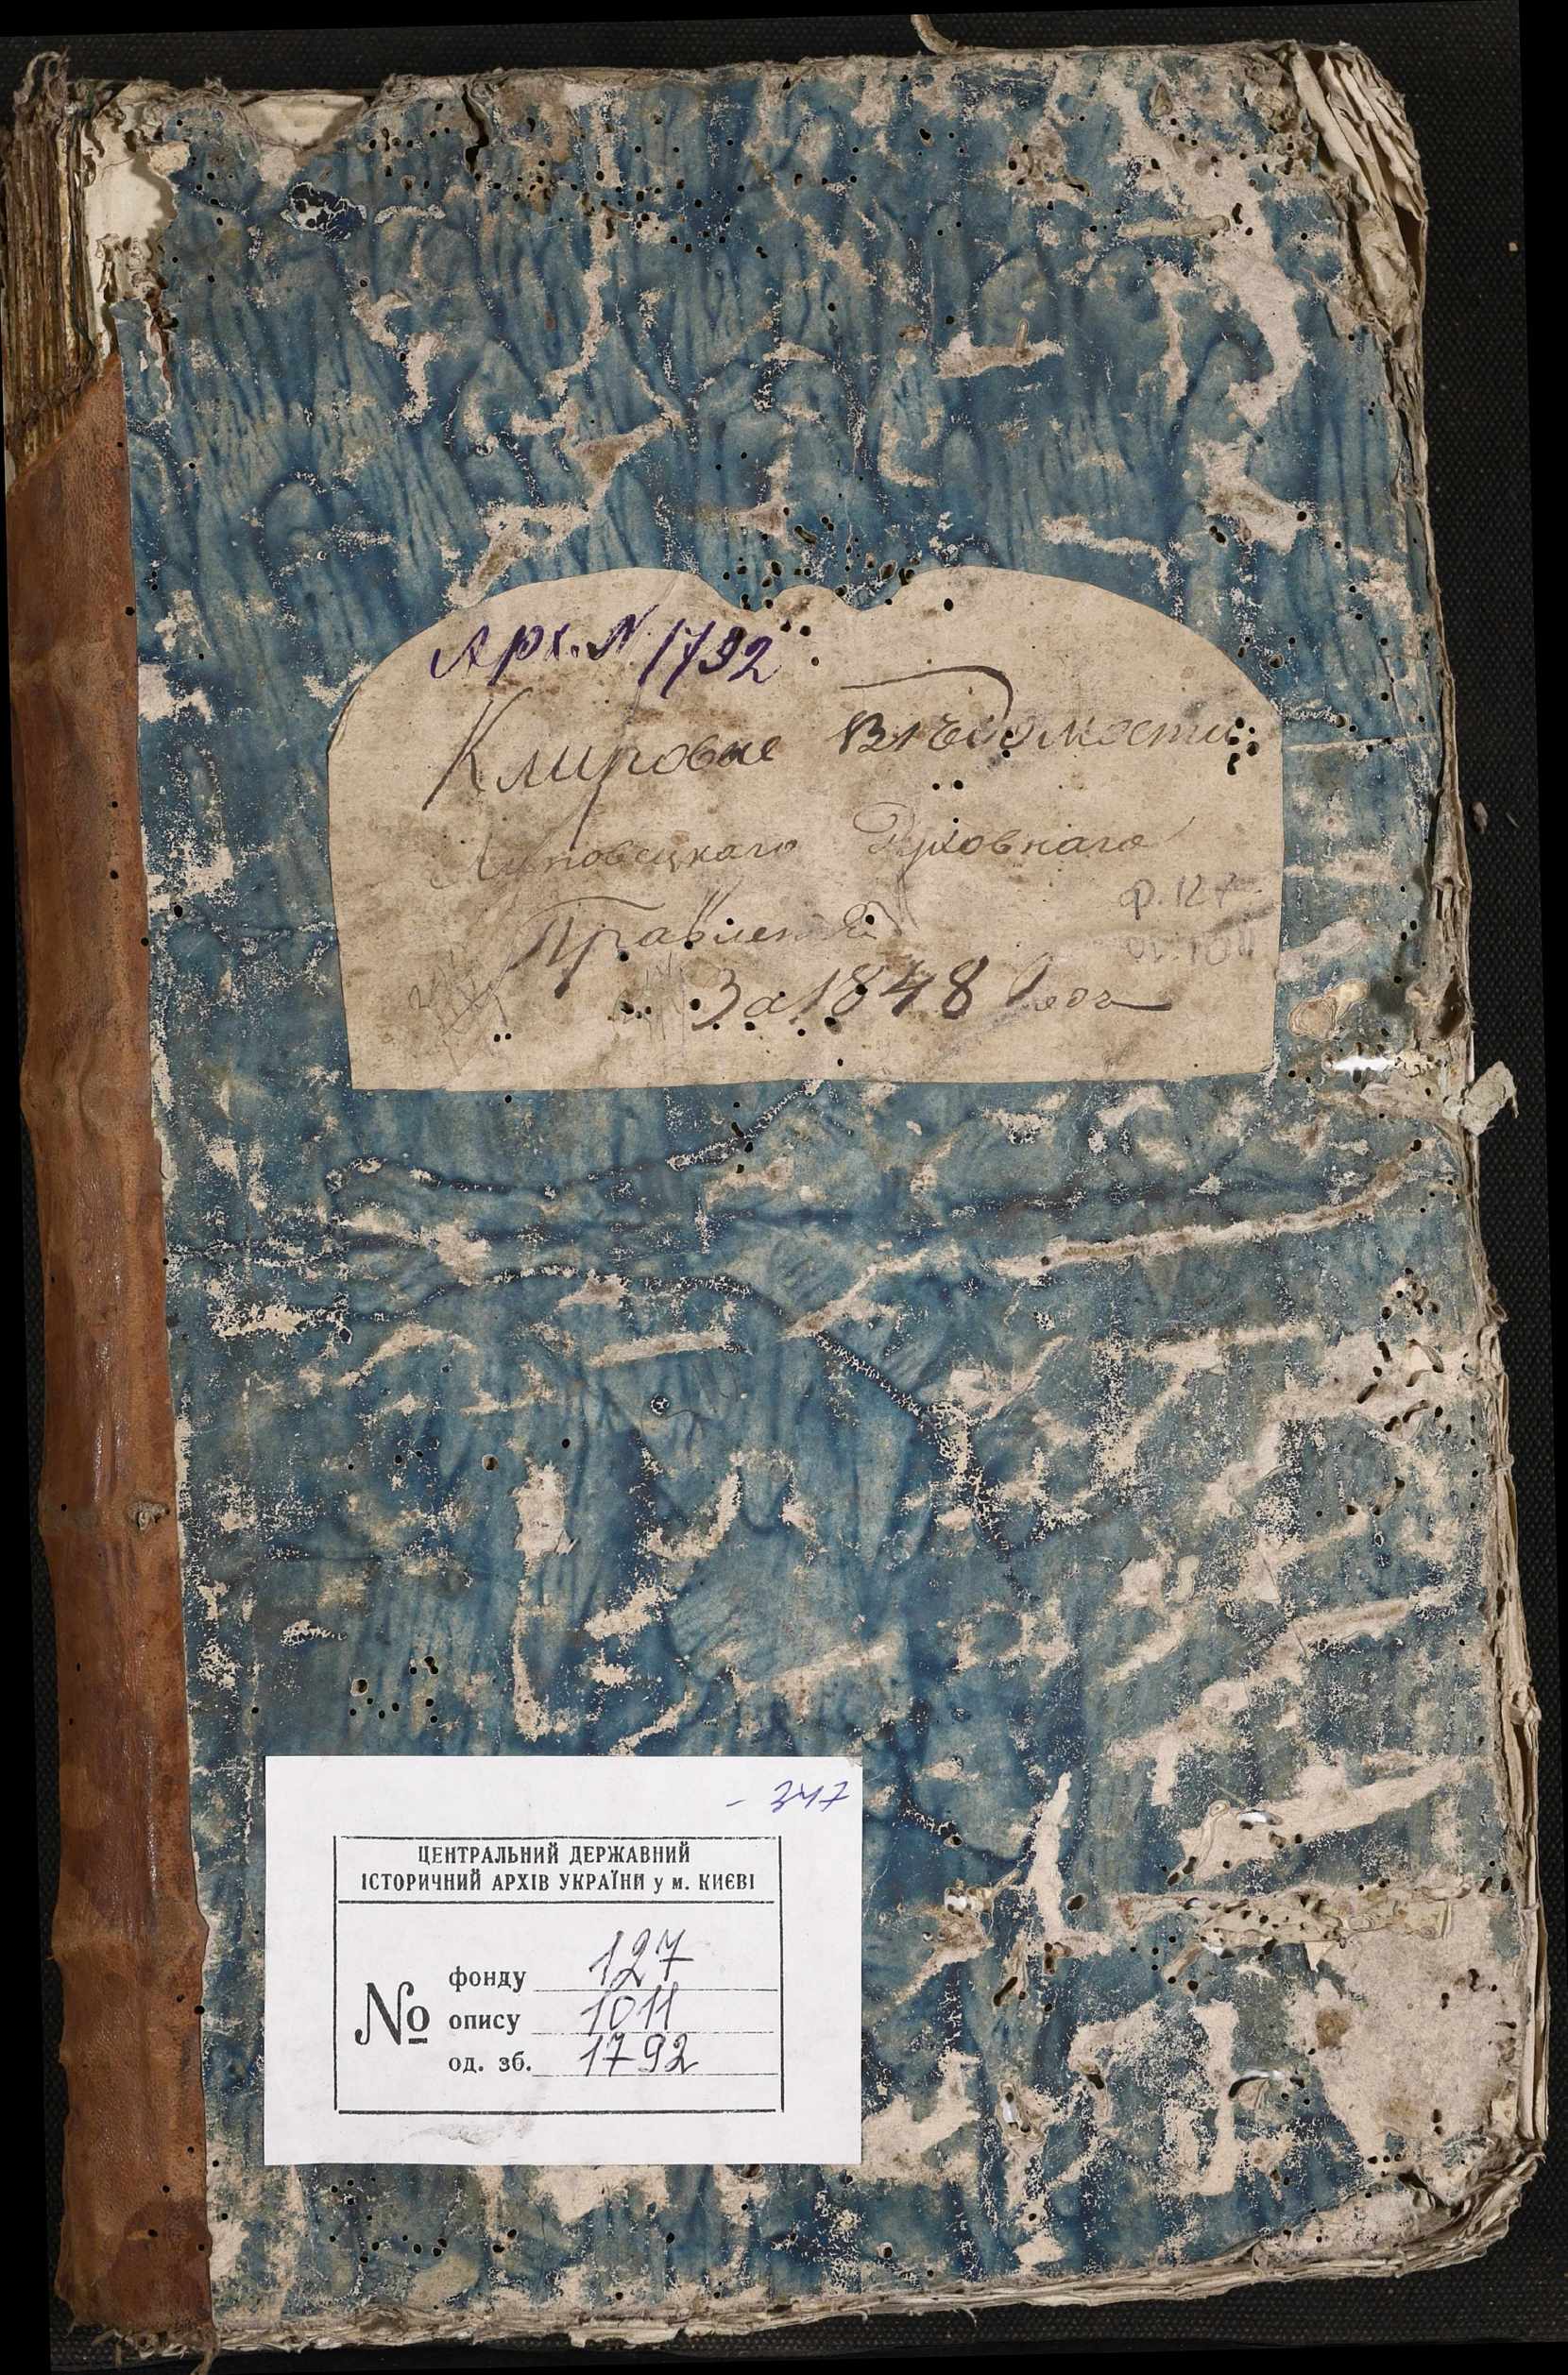 Арх. № 1792
Клировые Вѣдомости
Липовецкаго Духовнаго
Правленія
За 1848 Годъ
ф. 127
оп. 1011
- 347
ЦЕНТРАЛЬНИЙ ДЕРЖАВНИЙ
ІСТОРИЧНИЙ АРХІВ УКРАЇНИ у м. КИЄВІ
№
фонду 127
опису 1011
од. зб. 1792